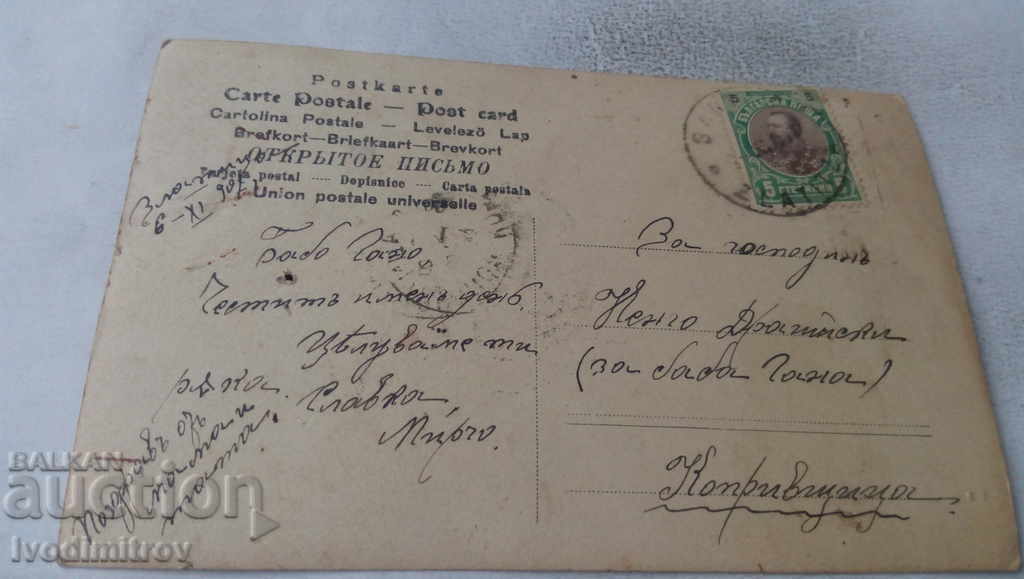 Postkarte
Carte Postale — Post card
Cartolina Postale — Levelező Lap
Brefkort—Briefkaart—Brevkort
ОТКРЫТОЕ ПИСЬМО
Tarjeta postal ---- Dopisnice -- Carta postala
Union postale universelle
Златица
6-XI 907
Бабо Гано
Честитъ именъ день.
Цѣлуваме ти
рѫка
Славка,
Мирчо.
Поздравъ отъ
мама и
татка.
За господинъ
Ненчо
(за баба Гана)
Копривщица.
5
BALKAN
auction
Ivodimitrov